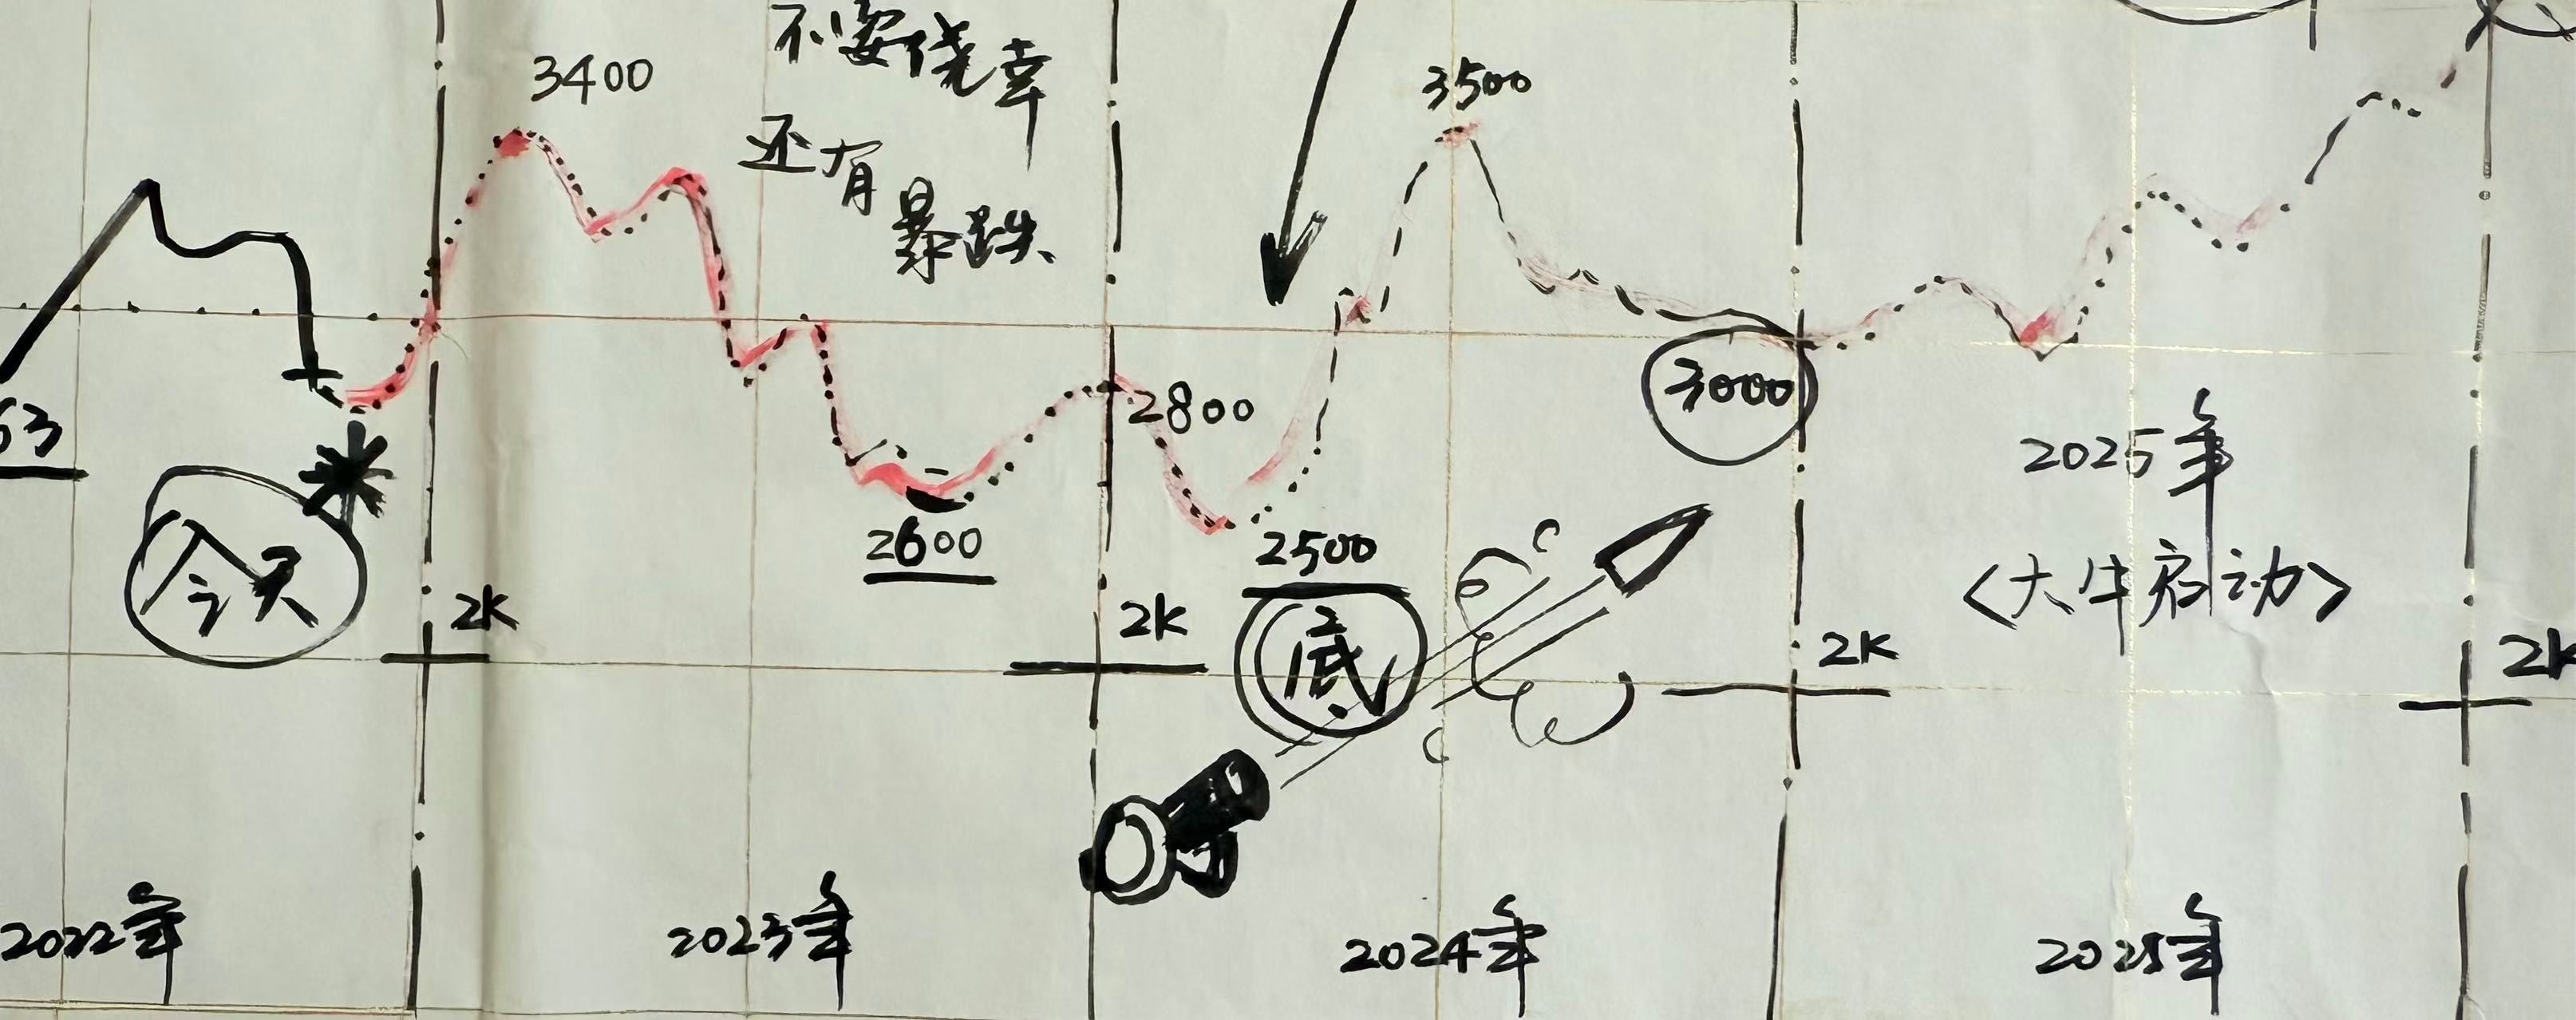 不要侥幸
还有
暴跌
3400
3500
63
2800
3000
今天
2600
2500
底
2025年
<大牛启动>
2K
2K
2K
2K
2022年
2023年
2024年
2025年